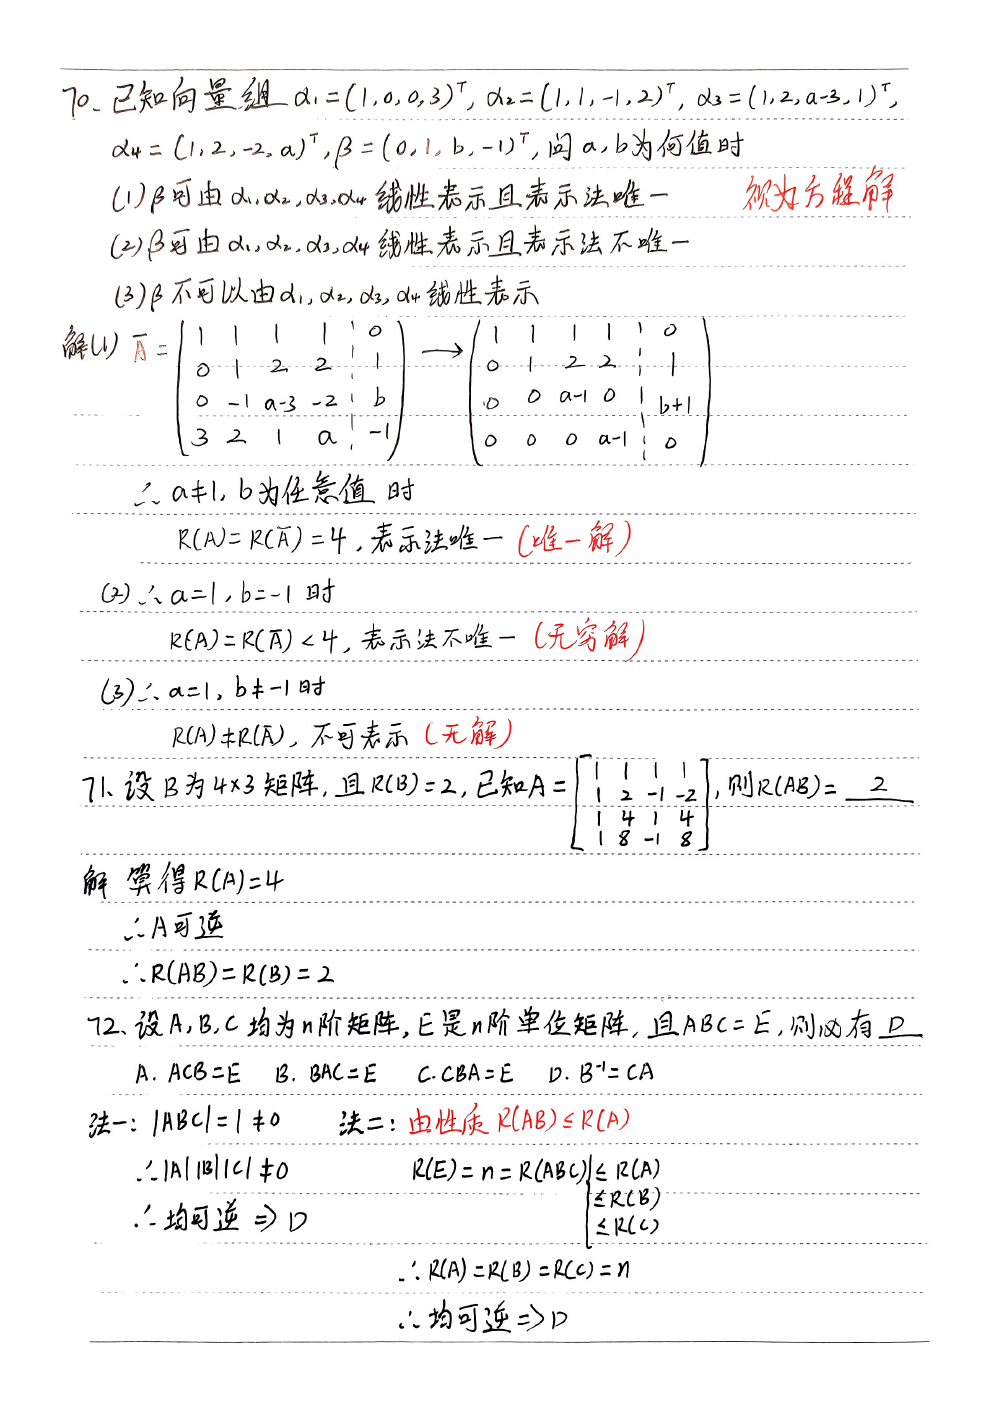 70、已知向量组 α1=(1,0,0,3)ᵀ, α2=(1,1,-1,2)ᵀ, α3=(1,2,a-3,1)ᵀ,
α4=(1,2,-2,a)ᵀ, β=(0,1,b,-1)ᵀ, 问a,b为何值时
(1)β可由α1,α2,α3,α4线性表示且表示法唯一 视为方程解
(2)β可由α1,α2,α3,α4线性表示且表示法不唯一
(3)β不可以由α1,α2,α3,α4线性表示
解(1) Ā= ( 1 1 1 1 ¦ 0 ) → ( 1 1 1 1 ¦ 0 )
0 1 2 2 ¦ 1   0 1 2 2 ¦ 1
0 -1 a-3 -2 ¦ b   0 0 a-1 0 ¦ b+1
3 2 1 a ¦ -1   0 0 0 a-1 ¦ 0
∴a≠1, b为任意值 时
R(A)=R(Ā)=4, 表示法唯一 (唯一解)
(2)∴a=1, b=-1时
R(A)=R(Ā)<4, 表示法不唯一 (无穷解)
(3)∴a=1, b≠-1时
R(A)≠R(Ā), 不可表示 (无解)
71、设B为4×3矩阵, 且R(B)=2, 已知A= [ 1 1 1 1 ], 则R(AB)= 2
1 2 -1 -2
1 4 1 4
1 8 -1 8
解 算得R(A)=4
∴A可逆
∴R(AB)=R(B)=2
72、设A,B,C均为n阶矩阵, E是n阶单位矩阵, 且ABC=E, 则必有 D
A. ACB=E B. BAC=E C. CBA=E D. B⁻¹=CA
法一: |ABC|=1≠0 法二: 由性质 R(AB)≤R(A)
∴|A||B||C|≠0 R(E)=n=R(ABC) ≤R(A)
≤R(B)
∴均可逆⇒D ≤R(C)
∴R(A)=R(B)=R(C)=n
∴均可逆⇒D